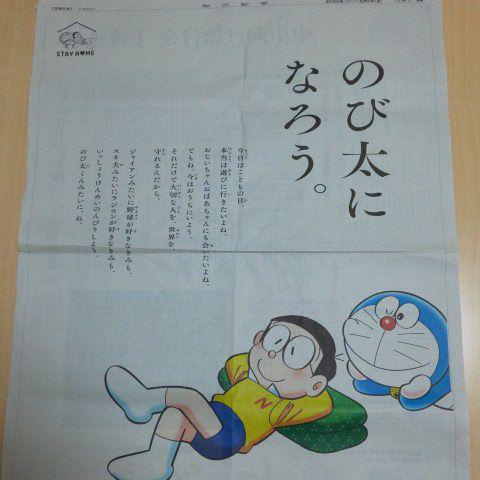 STAY HOME
のび太に
なろう。
今日はこどもの日。
本当は遊びに行きたいよね。
おじいちゃんおばあちゃんにも会いたいよね。
でもね、今はおうちにいよう。
それだけで大切な人を、世界を、
守れるんだから。
ジャイアンみたいに野球が好きなきみも、
スネ夫みたいにラジコンが好きなきみも、
いっしょうけんめいのんびりしよう。
のび太くんみたいに、ね。